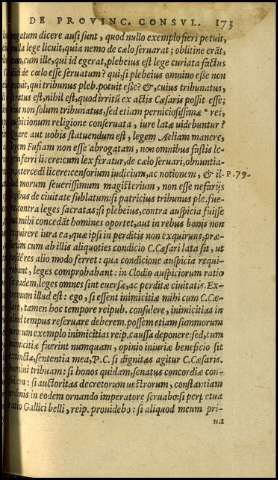 DE PROVINC. CONSVL. 173
dicere ausi sunt, quod nullo exemplo fieri potuit,
lege licuit, quia nemo de cælo seruarat; oblitine erāt,
cum ille, qui id egerat, plebeius est lege curiata factus
de cælo esse seruatum? qui si plebeius omnino esse non
qui tribunus pleb. potuit esse? &, cuius tribunatus,
est, nihil est, quod irritū ex actis Cæsaris possit esse;
non solum tribunatus, sed etiam perniciosissimæ * rei,
religione conseruata, iure latæ uidebuntur?
aut uobis statuendum est, legem Aeliam manere,
Fufiam non esse abrogatam, non omnibus fastis le-
ferri licere: cum lex feratur, de cælo seruari, obnuntia-
intercedi licere: censorium iudicium, ac notionem, & il- P. 79.
morum seuerissimum magisterium, non esse nefarijs
de ciuitate sublatum: si patricius tribunus ple. fue-
contra leges sacratas; si plebeius, contra auspicia fuisse
mihi concedāt homines oportet, aut in rebus bonis non
iura ea, quæ ipsi in perditis non exquirunt, præ-
cum ab illis aliquoties conditio C. Cæsari lata sit, ut
res alio modo ferret: qua condicione auspicia requi-
leges comprobabant: in Clodio auspiciorum ratio
eadem, leges omnes sint euersæ, ac perditæ ciuitatis. Ex-
illud est: ego, si essent inimicitiæ mihi cum C. Cæ-
tamen hoc tempore reipub. consulere, inimicitias in
tempus reseruare deberem. possem etiam summorum
exemplo inimicitias reip. caussa deponere. sed, cum
fuerint nunquam, opinio iniuriæ beneficio sit
sententia mea, P. C. si dignitas agitur C. Cæsaris,
tribuam: si honos quidam, senatus concordiæ con-
si auctoritas decretorum uestrorum, constantiam
in eodem ornando imperatore seruabo: si perpetua
Gallici belli, reip. prouidebo: si aliquod meum pri-